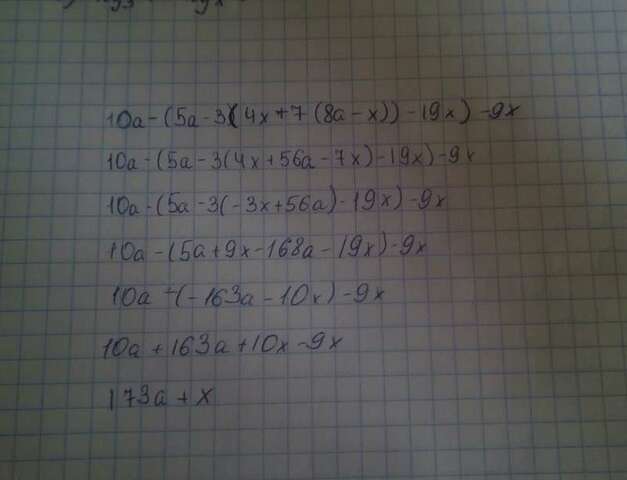 10a-(5a-3(4x+7(8a-x))-19x)-9x
10a-(5a-3(4x+56a-7x)-19x)-9x
10a-(5a-3(-3x+56a)-19x)-9x
10a-(5a+9x-168a-19x)-9x
10a-(-163a-10x)-9x
10a+163a+10x-9x
173a+x